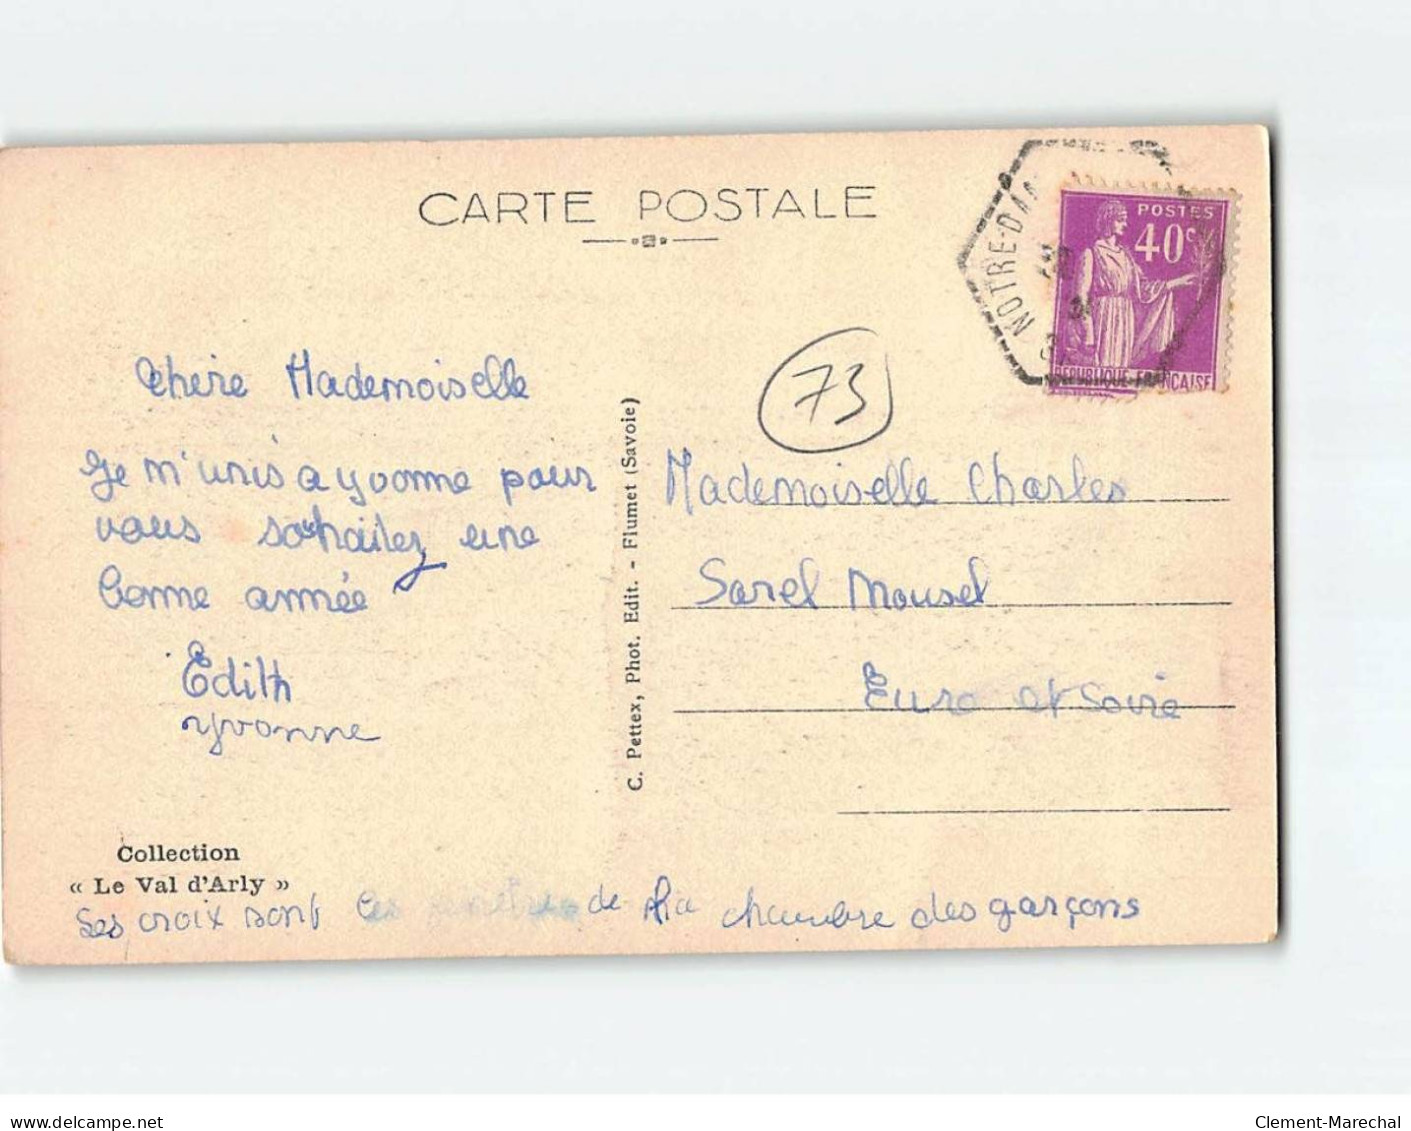 CARTE POSTALE
NOTRE-DAM
POSTES
40c
RÉPUBLIQUE-FRANÇAISE
73
Chère Mademoiselle
Je m'unis a yvonne pour
vous souhaitez une
bonne année
Edith
yvonne
C. Pettex, Phot. Edit. - Flumet (Savoie)
Mademoiselle Charles
Sorel Mousel
Eure et Loire
Collection
« Le Val d'Arly »
Les croix sont les de la chambre des garçons
delcampe.net
Clement-Marechal